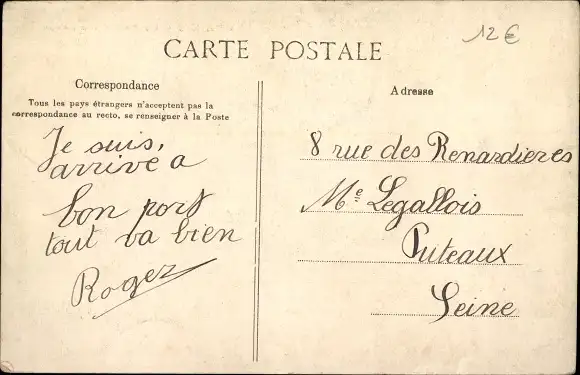 12€
CARTE POSTALE
Correspondance
Tous les pays étrangers n'acceptent pas la
correspondance au recto, se renseigner à la Poste
Je suis,
arrive a
bon port
tout va bien
Roger
Adresse
8 rue des Renardieres
Me Legallois
Puteaux
Seine